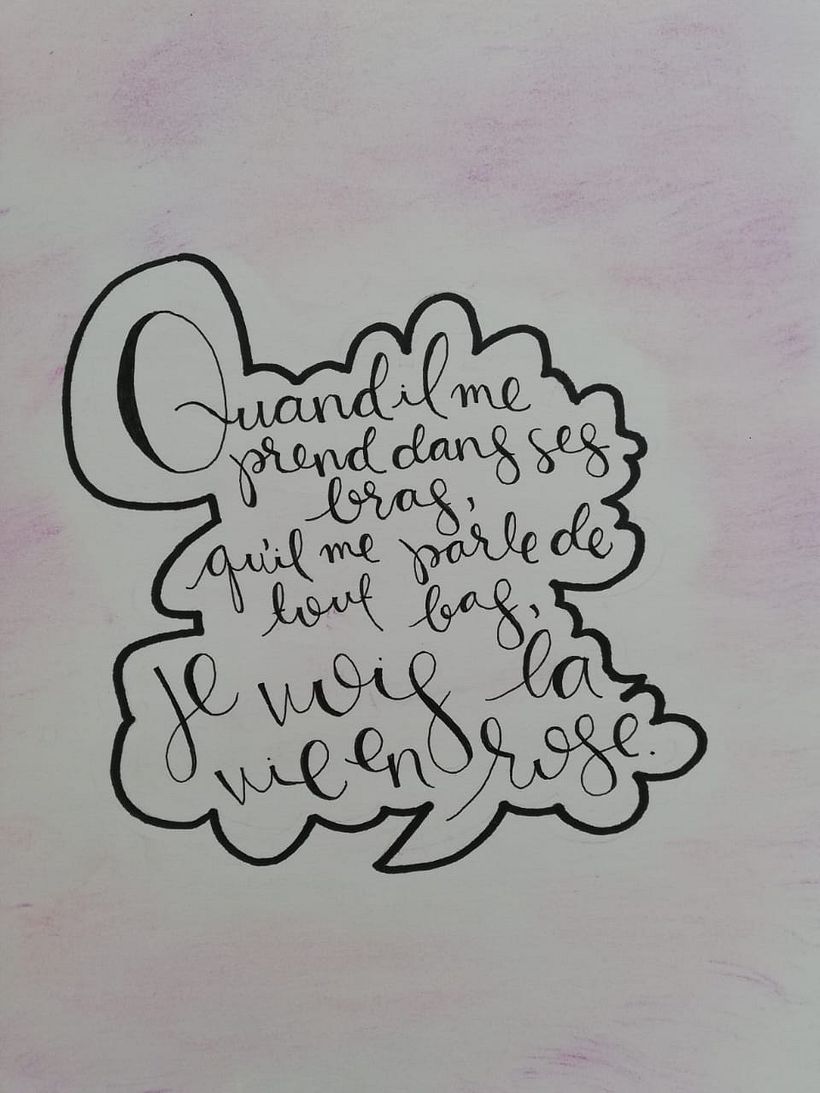 Quand il me
prend dans ses
bras,
qu'il me parle de
tout bas,
je vois la
vie en rose.